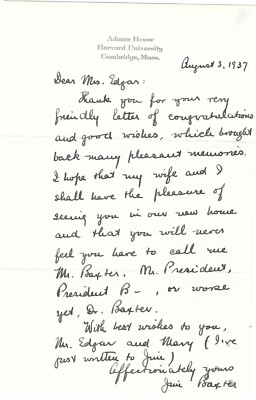 Adams House
Harvard University
Cambridge, Mass.
August 3, 1937
Dear Mrs. Edgar:
Thank you for your very
friendly letter of congratulations
and good wishes, which brought
back many pleasant memories.
I hope that my wife and I
shall have the pleasure of
seeing you in our new home
and that you will never
feel you have to call me
Mr. Baxter, Mr. President,
President B—, or worse
yet, Dr. Baxter.
With best wishes to you,
Mr. Edgar and Mary (I've
just written to Jim)
Affectionately yours
Jim Baxter